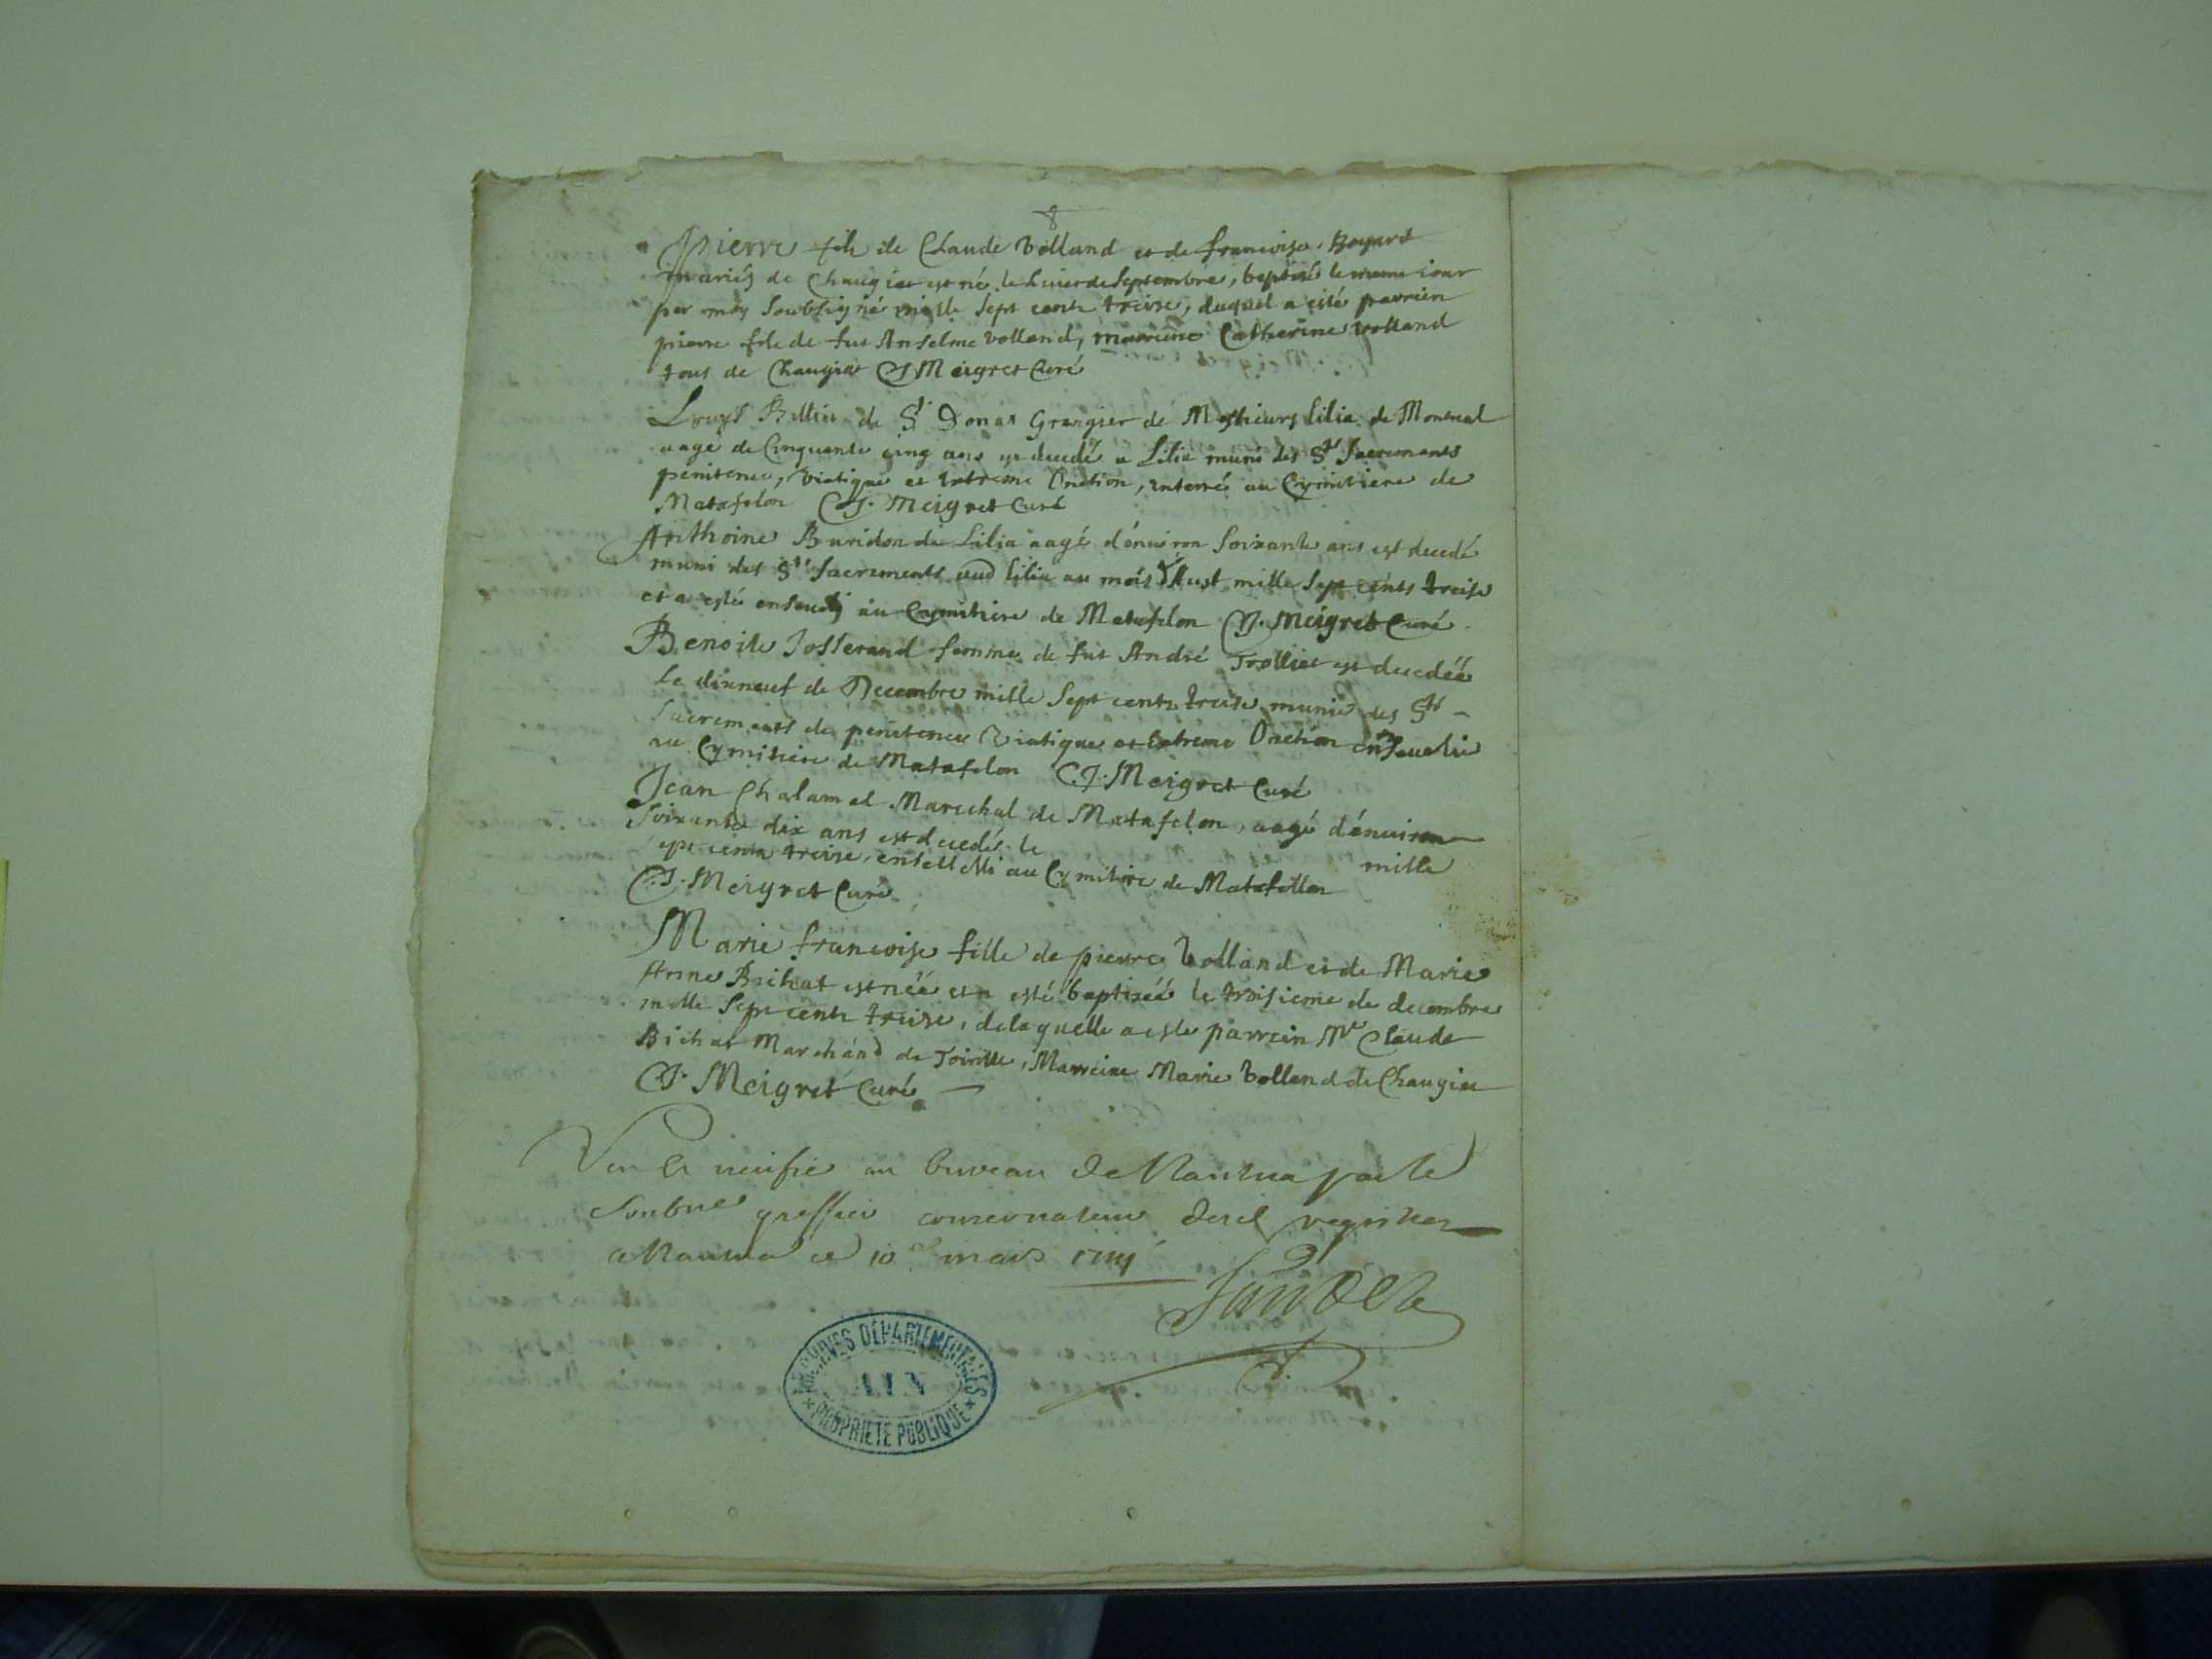 Pierre fils de Claude Volland et de francoise Bogard
mariés de Chaugiat est né le huict de Septembre, baptisé le meme iour
par moy Soubsigné mille Sept cents treise, duquel a esté parrein
pierre fils de fut Anselme volland, marreine Catherine volland
tous de Chaugiat C J Meigret Curé
Louys Billiet de St Donat Grangier de Messieurs Lilia de Montreal
aagé de Cinquante cinq ans est decedé a Lilia muni des Sts Sacrements
penitence, viatique et Extreme Onction, enterré au Cymitiere de
Matafelon C J. Meigret Curé
Anthoine Buridon de Lilia aagé d'énuiron Soixante ans est decedé
muni des Sts Sacrements aud Lilia au mois d'Aust mille Sept cents treise
et a esté enseveli au Cymitiere de Matafelon C J. Meigret Curé
Benoite Josserand femme de fut André Trolliet est decedéé
Le dixneuf de Decembre mille Sept cents treise munie des Sts
Sacrements de penitence Viatique et Extreme Onction ensevelie
au Cymitiere de Matafelon C. J. Meigret Curé
Jean Chalamel Marechal de Matafelon, aagé d'énuiron
Soixante dix ans est decedé le mille
sept cents treise, enseveli au Cymitire de Matafellon
C. J. Meigret Curé
Marie francoise fille de pierre Volland et de Marie
Anne Bichat est néé et a esté baptiséé le troisieme de decembre
mille Sept cents treise, de laquelle a esté parrein Mr Claude
Bichat Marchand de Marreine Marie Volland de Chaugiat
C J. Meigret Curé
Veu et verifié au bureau de Nantua par le
Soubne greffier conservateur desd registres
a Nantua ce 10e mars 1714
ARCHIVES DÉPARTEMENTALES
AIN
PROPRIÉTÉ PUBLIQUE